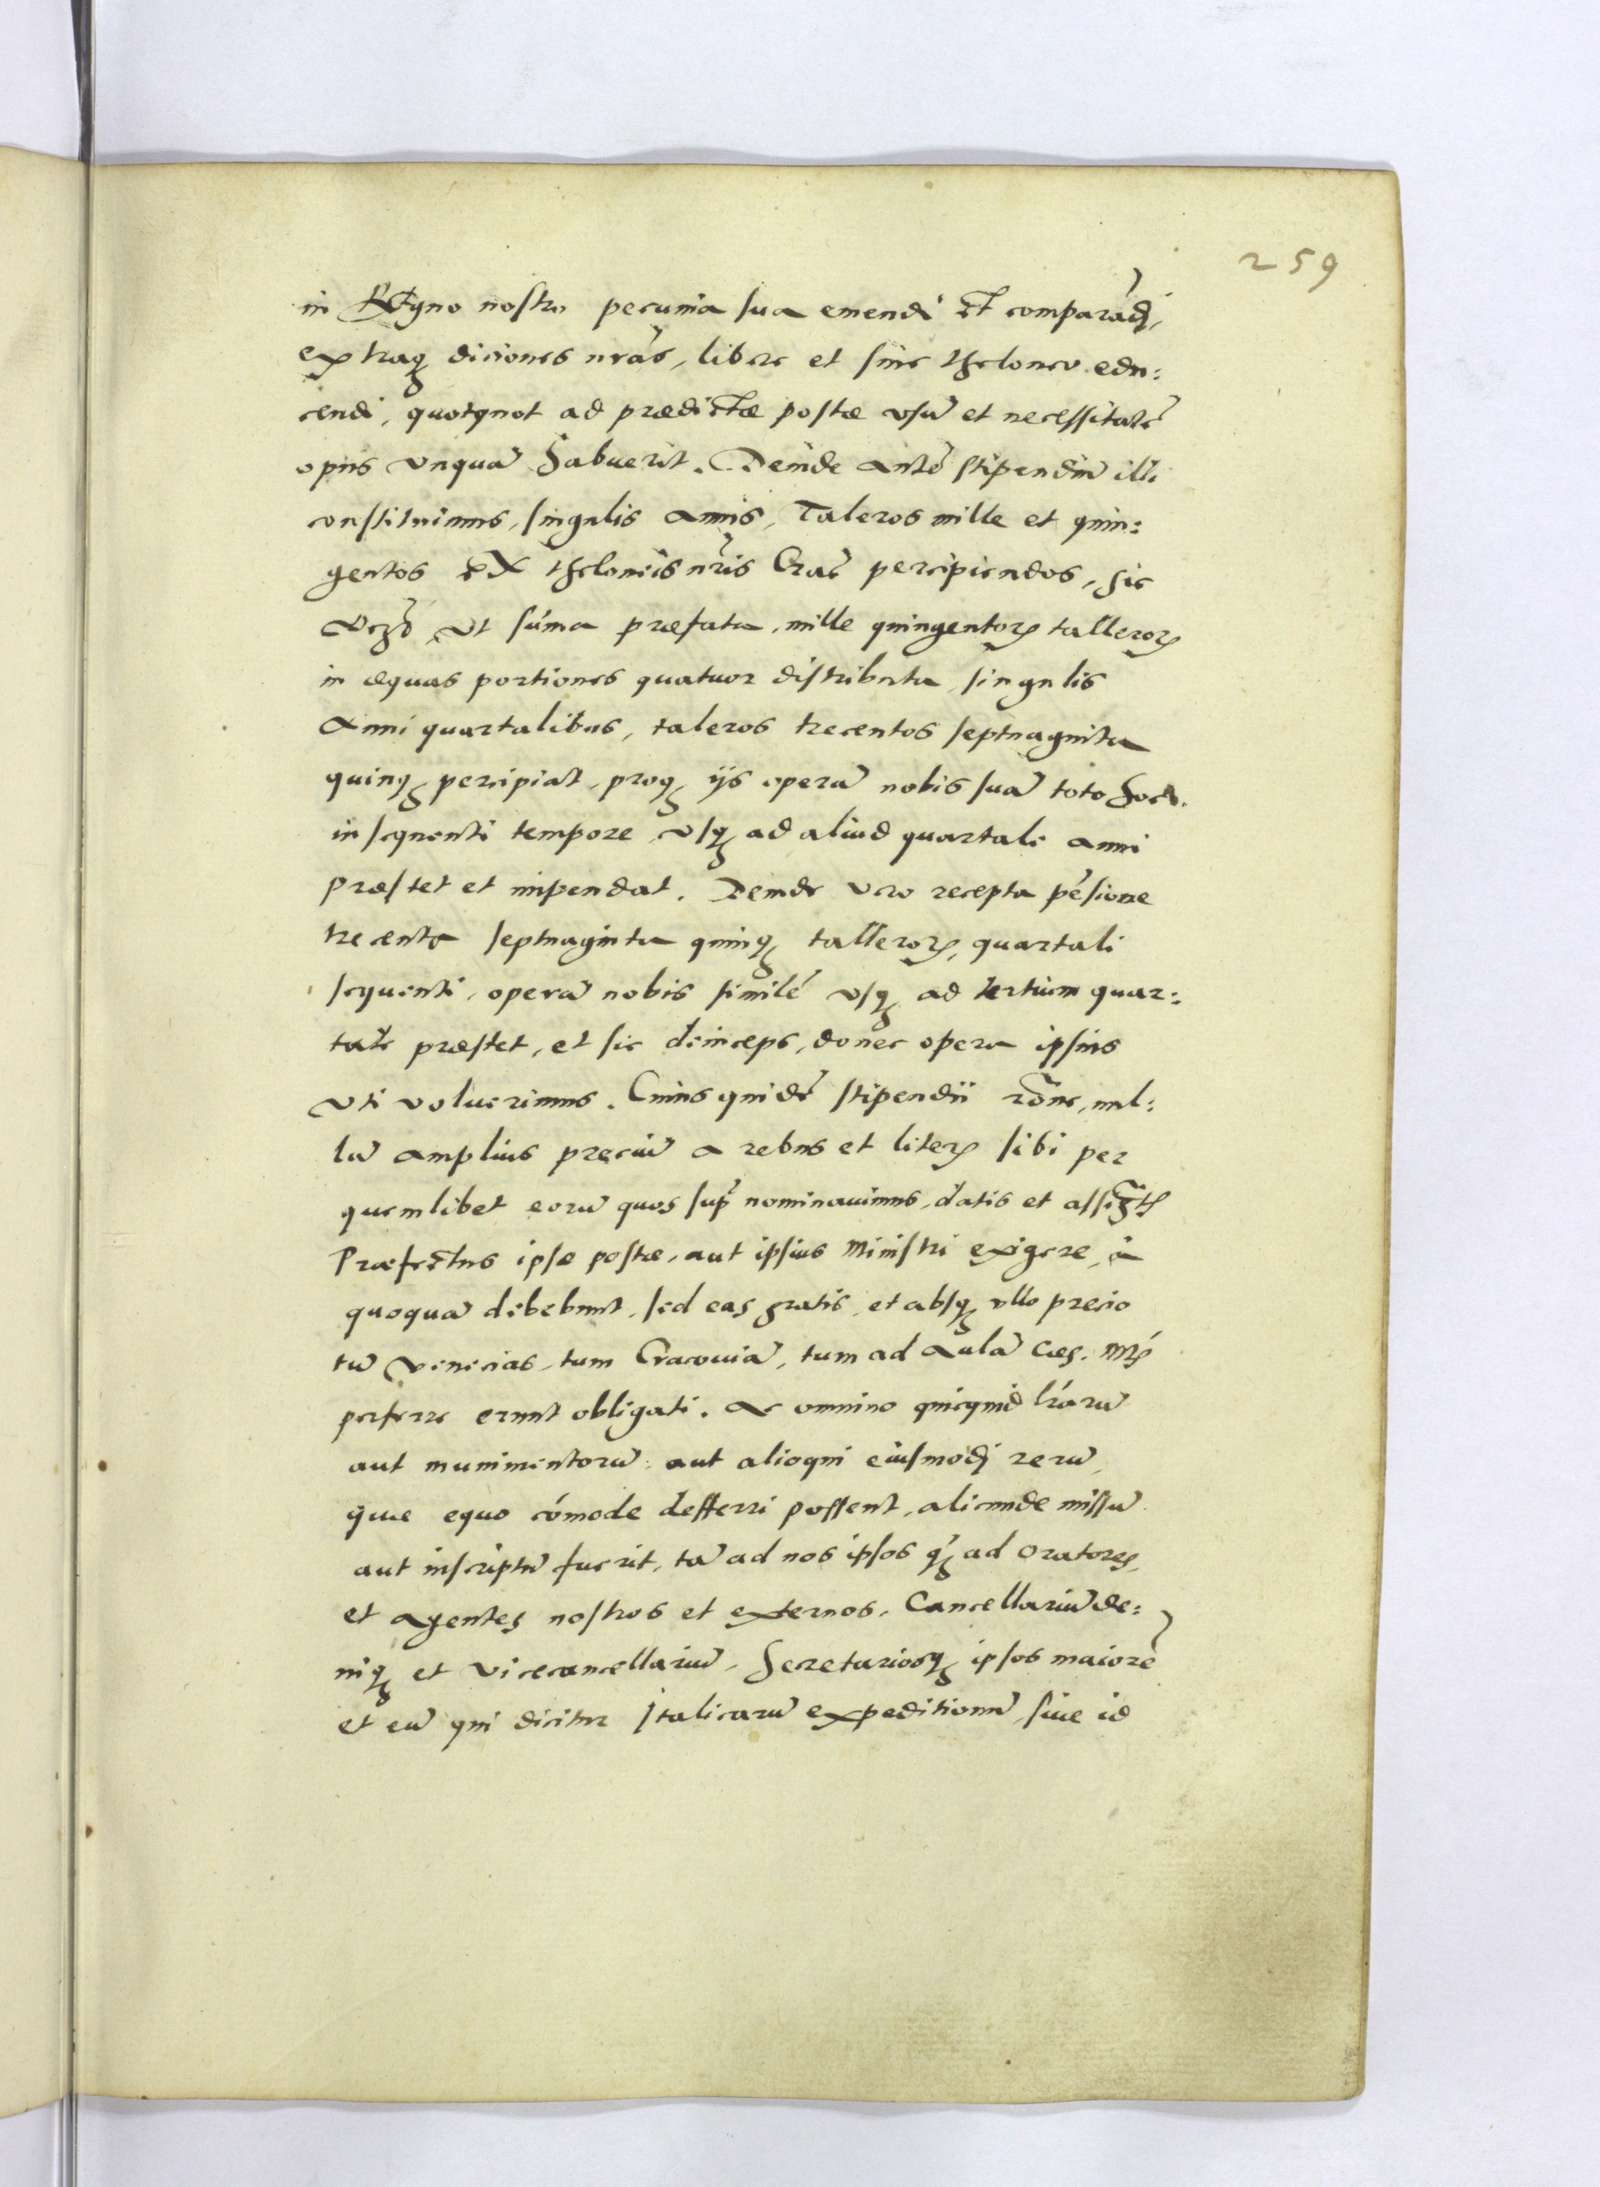 259
in Regno nostro pecunia sua emendi et comparādi,
extraq₃ diciones nr̄as, libere et sine theloneo edu:
cendi, quotquot ad prædictæ postæ vsū et necessitatē
opus vnquā habuerit. Deinde autē stipendiū illi
constituimus, singulis annis, Taleros mille et quin:
gentos ex theloneis nr̄is Crac̄ percipiendos, sic
ut sūma præfata, mille quingentoꝝ talleroꝝ
in æquas portiones quatuor distributa, singulis
Anni quartalibus, taleros trecentos septuaginta
quinq₃ percipiat, proq₃ ijs operā nobis suā toto hoc
insequenti tempore vsq₃ ad aliud quartale anni
præstet et impendat. Deinde vero recepta pēsione
trecento septuaginta quinq₃ talleroꝝ, quartali
sequenti, operā nobis similē vsq₃ ad tertium quar:
tale præstet, et sic deinceps, donec opera ipsius
vti voluerimus. Cuius quidē stipendii rōne, nul:
lū amplius preciū a rebus et literꝭ sibi per
quemlibet eorū quos sup̄ nominauimus, datis et assigtꝭ
Præfectus ipse postæ, aut ipsius Ministri exigere, à
quoquā debebunt, sed eas gratis, et absq₃ vllo precio
tū Venecias, tum Cracouiā, tum ad Aulā Cæs. Mtꝭ
perferre erunt obligati. Ac omnino quicquid lr̄arū
aut munimentorū aut alioqui eiusmodi rerū,
quæ equo cōmode defferri possent, alicunde missū
aut inscriptū fuerit, tā ad nos ipsos q̄₃ ad Oratores,
et Agentes nostros et externos, Cancellariū de:
niq₃ et Vicecancellariū, Secretariosq₃ ipsos maiorē
et eū qui dicitur Italicarū expeditionū, siue id